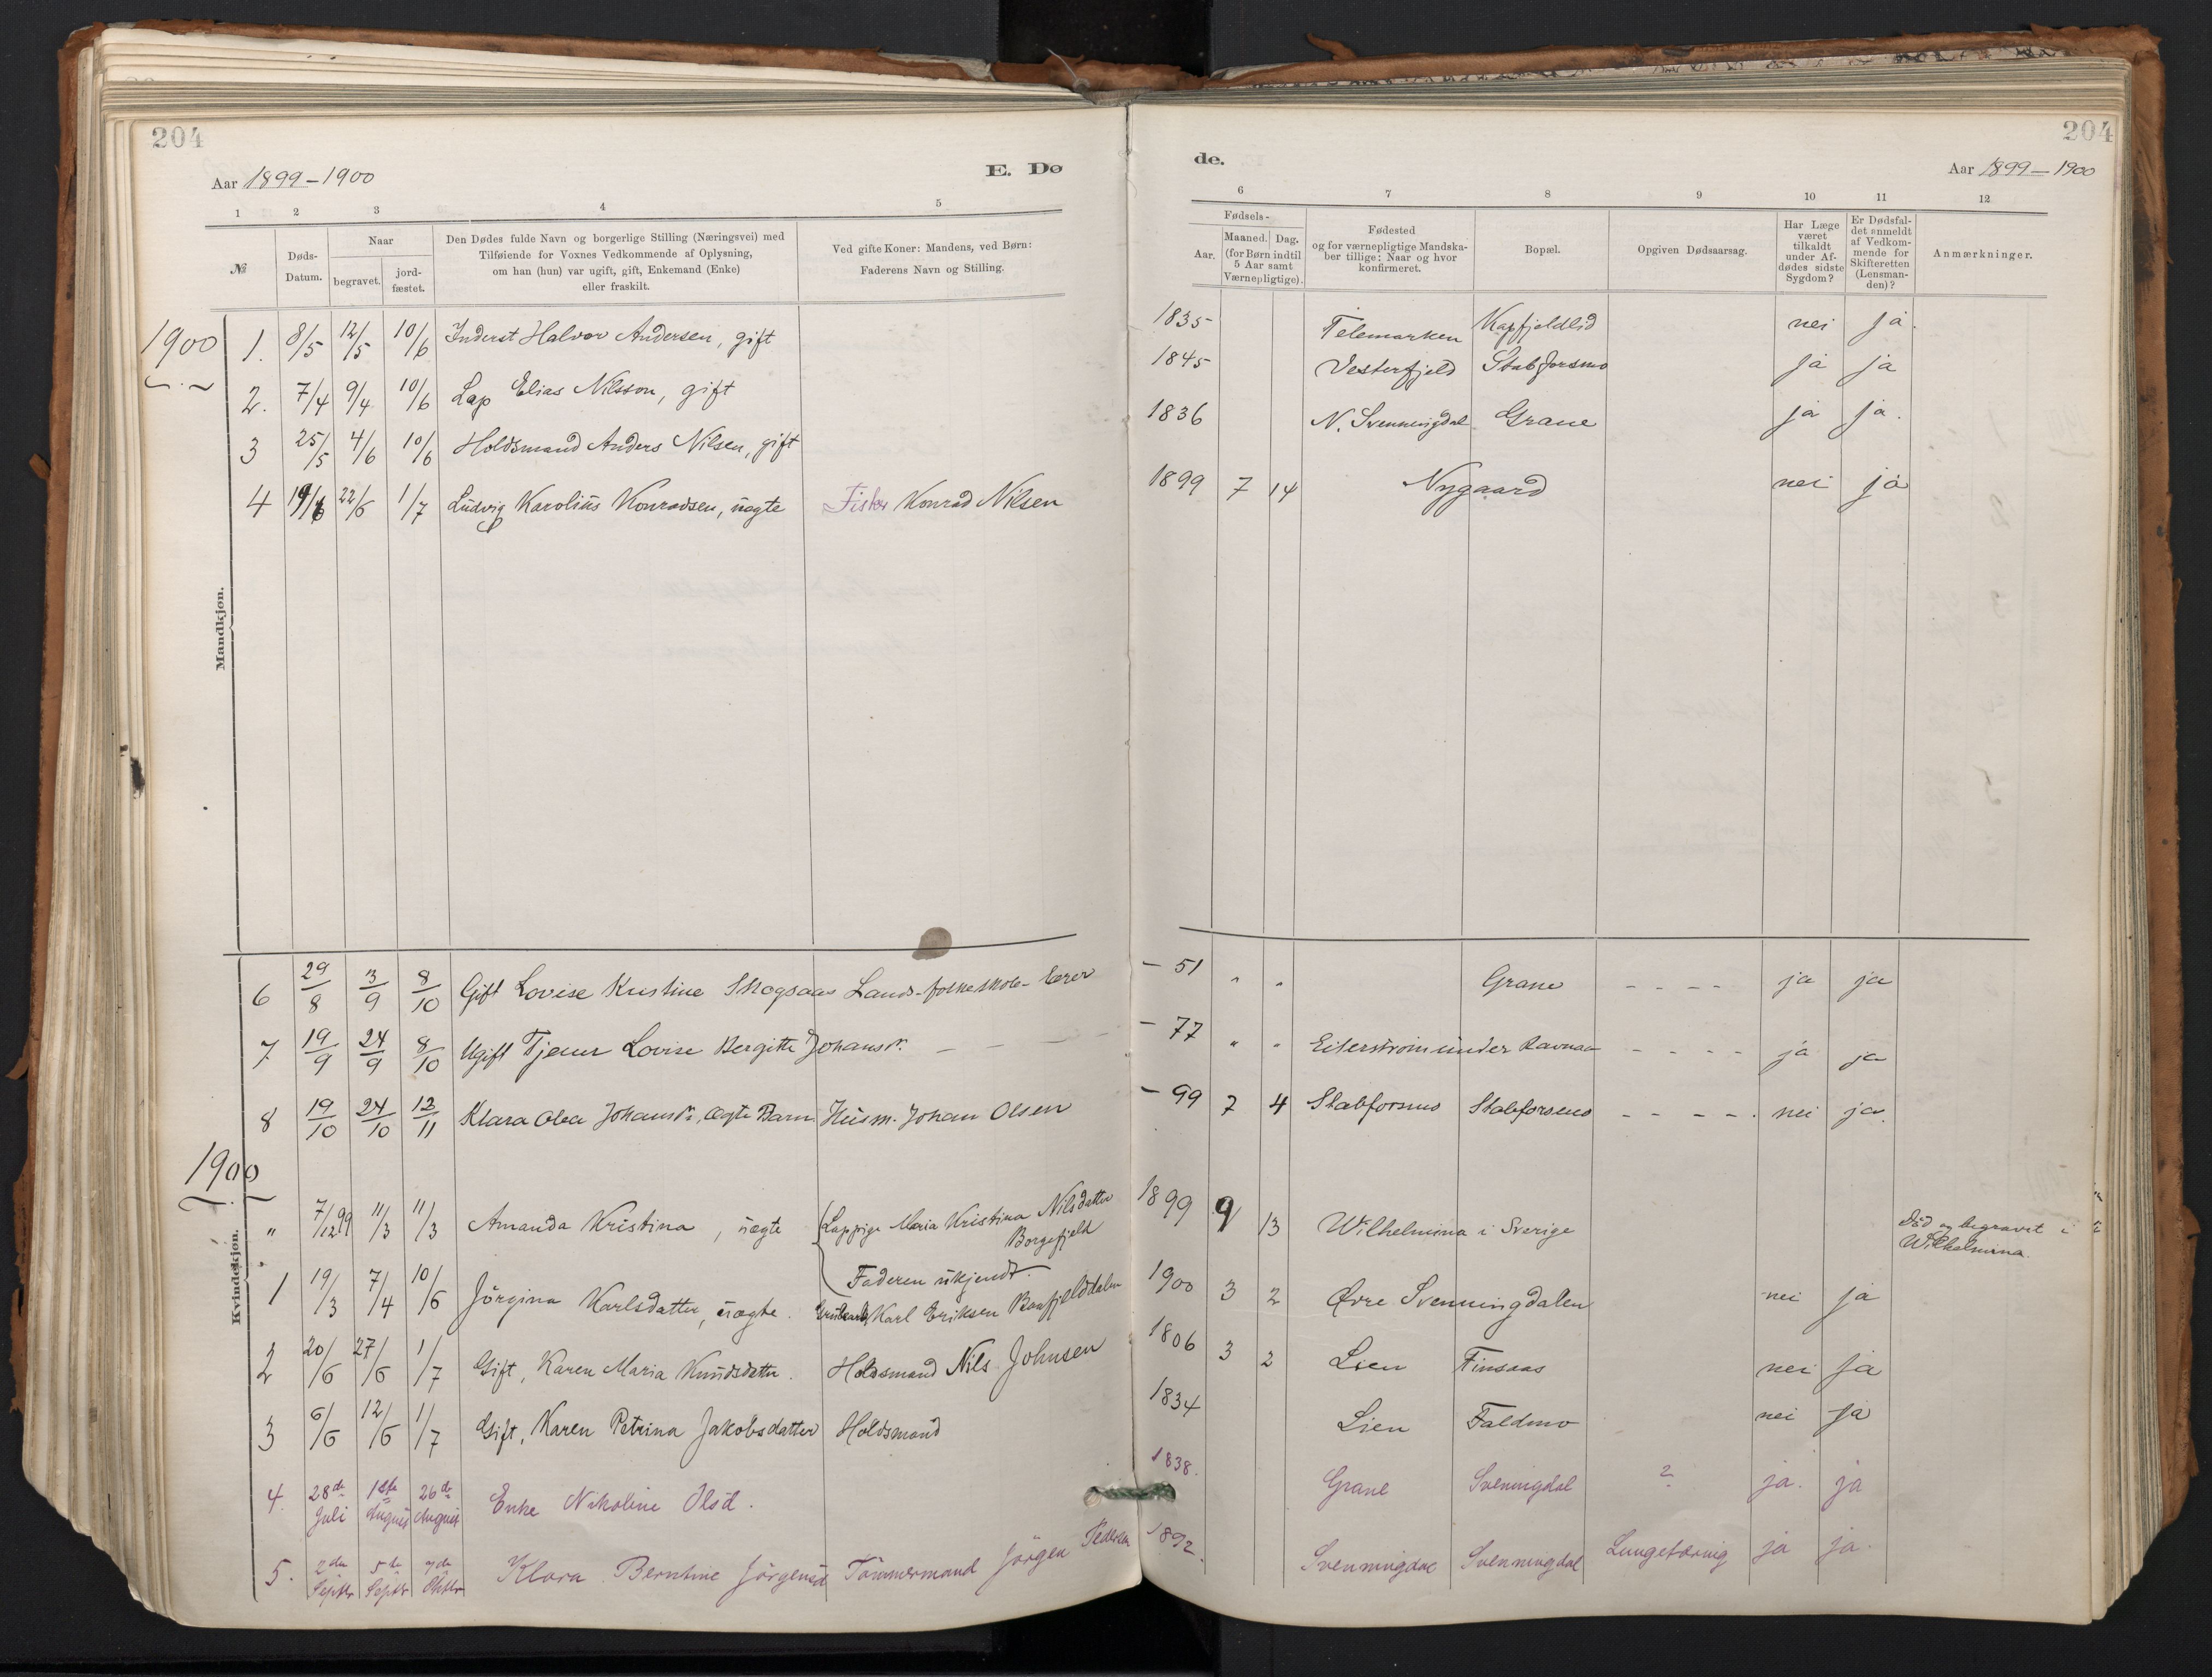 204
Aar 1899-1900
E. Dø
1 2 3 4 5
№
Døds-Datum.
Naar
begravet.
jord-fæstet.
Den Dødes fulde Navn og borgerlige Stilling (Næringsvei) med
Tilføiende for Voxnes Vedkommende af Oplysning,
om han (hun) var ugift, gift, Enkemand (Enke)
eller fraskilt.
Ved gifte Koner: Mandens, ved Børn:
Faderens Navn og Stilling.
1900
1. 8/5 12/5 10/6 Inderst Halvor Andersen, gift
2. 7/4 9/4 10/6 Lap Elias Nilsson, gift
3 25/5 4/6 10/6 Holdsmand Anders Nilsen, gift
4 19/6 22/6 1/7 Ludvig Karolius Konradsen, uægte Fisker Konrad Nilsen
Mandkjøn.
6 29/8 3/9 8/10 Gift Lovise Kristine Skogsaas Lands-folkeskole-lærer
7 19/9 24/9 8/10 Ugift Tjener Lovise Bergitte Johansdr. - - -
8 19/10 24/10 12/11 Klara Olea Johansdr., ægte Barn Husm. Johan Olsen
1900
" 7/12 99 11/3 11/3 Amanda Kristina, uægte Lappige Maria Kristina Nilsdatter
Borgefjeld
Faderen ukjendt.
1 19/3 7/4 10/6 Jörgina Karlsdatter, uægte. Karl Eriksen Baafjelddalen
2 20/6 27/6 1/7 Gift, Karen Maria Knudsdatter. Holdsmand Nils Johnsen
3 6/6 12/6 1/7 Gift, Karen Petrina Jakobsdatter Holdsmand
4. 28de Juli 1ste August 26de August Enke Nikoline Olsd.
5. 2den Septbr 5te Septbr 7de Oktbr Klara Berntine Jörgensd Tömmermand Jörgen Pedersen
Kvindekjøn.
204
de.
Aar 1899-1900
6 7 8 9 10 11 12
Fødsels-
Aar.
Maaned. Dag.
(for Børn indtil
5 Aar samt
Værnepligtige).
Fødested
og for værnepligtige Mandska-
ber tillige: Naar og hvor
konfirmeret.
Bopæl.
Opgiven Dødsaarsag.
Har Læge
været
tilkaldt
under Af-
dødes sidste
Sygdom?
Er Dødsfal-
det anmeldt
af Vedkom-
mende for
Skifteretten
(Lensman-
den)?
Anmærkninger.
1835 Telemarken Kapfjeldlid nei ja.
1845 Vesterfjeld Stabforsmo ja ja
1836 N. Svenningdal Grane ja ja.
1899 7 14 Nygaard nei ja
- 51 " " Grane - - - - ja ja
- 77 " " Eiterstrøm under Ravnaa - - - - ja ja
- 99 7 4 Stabforsmo Stabforsmo - - - - . nei ja.
1899 9 13 Wilhelmina i Sverige Död og begravet i
Wilhelmina.
1900 3 2 Øvre Svenningdalen nei ja
1806 3 2 Lien Finsaas nei ja
1834 Lien Faldmo nei ja
1838. Grane Sveningdal ? ja. ja
1892. Svenningdal Svenningdal Lungetæring ja ja.